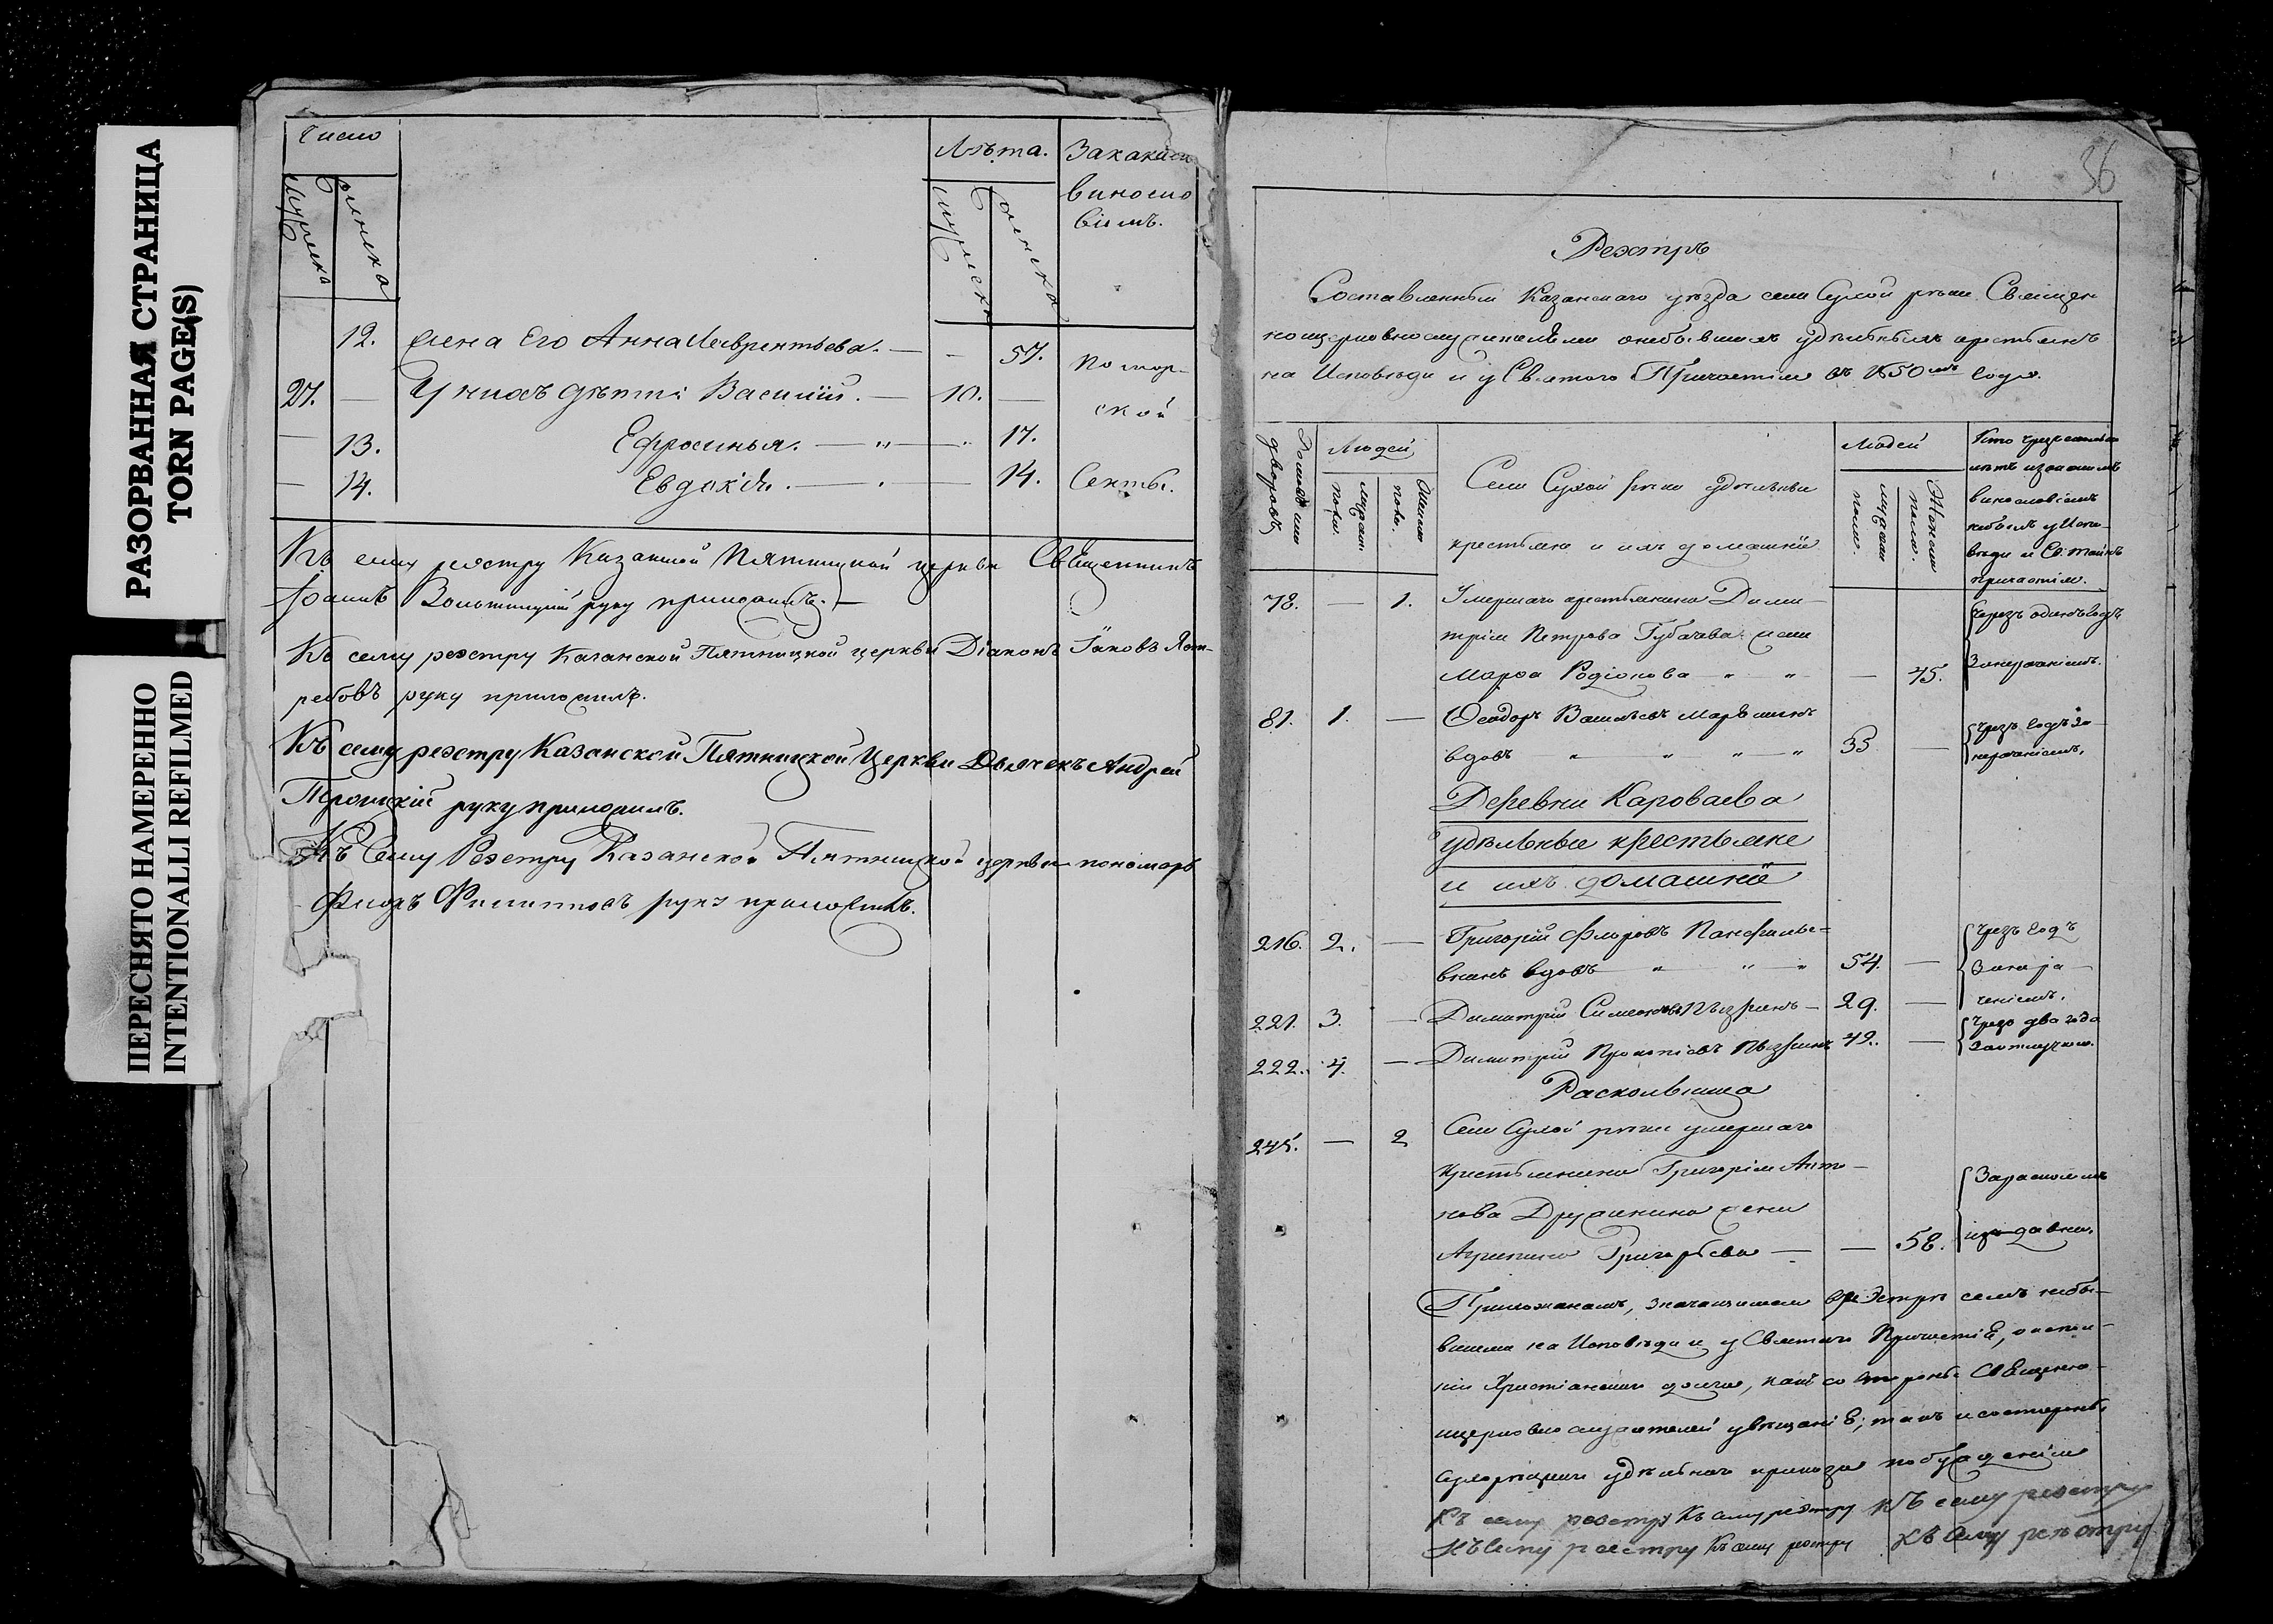 РАЗОРВАННАЯ СТРАНИЦА
TORN PAGE(S)
ПЕРЕСНЯТО НАМЕРЕННО
INTENTIONALLI REFILMED
Число
Лѣта.
За какимъ
виносло
віемъ.
12. жена Его Анна Лаврентьева. — - 57.
По мор-
27. — У нихъ дѣти: Василій. — 10. —
ской
— 13. Ефросинья. — 17.
— 14. Евдокія. — 14. Секты.
Къ сему реэстру Казанской Пятницкой церкви Священникъ
Іоаннъ руку приложилъ.
Къ сему реэстру Казанской Пятницкой церкви Діаконъ Іаковъ Яст-
ребовъ руку приложилъ.
Къ сему реэстру Казанской Пятницкой Церкви Дьячекъ Андрей
Троицкій руку приложилъ.
Къ Сему Реэстру Казанской Пятницкой церкви пономарь
Филипповъ руку приложилъ.
36
Реэстръ
Составленный Казанскаго уѣзда села Сухой рѣки Священ
ноцерковнослужителями о небывшихъ удѣльныхъ крестьянъ
на Исповѣди и у Святаго Причастія въ 1850мъ годѣ.
Людей
Села Сухой рѣки удѣльные
крестьяне и ихъ домашніе
Людей
Женска
пола.
виносло­віемъ
небылъ у Испо-
вѣди и Св: таинъ
причастія.
78. — 1. Умершаго крестьянина Дими-
трія Петрова Губачева жена
Марѳа Родіонова — 45.
Чрезъ одинъ годъ
За нераченіемъ.
81. 1. — Ѳеодоръ Васильевъ
вдовъ 33 —
Чрезъ годъ за
нераченіемъ.
Деревни Кароваева
удѣльные крестьяне
и ихъ домашніе
216. 2. — Григорій Флоровъ
вдовъ 54. —
Чрезъ годъ
За нера-
ченіемъ.
221. 3. — Димитрій Симеоновъ — 29. —
222. 4. — Димитрій Прокопіевъ 42. —
Чрезъ два года
За отлучкою.
Раскольница
245. — 2 Села Сухой рѣки умершаго
крестьянина Григорія Анто-
нова Дружинина жена
Агрипина Григорьева — — 58.
За расколомъ
издавна.
Прихожанамъ, значащимся в реэстрѣ семъ небы-
вшимъ на Исповѣди и у Святаго Причастія, о испол-
ніи Христіанскаго долга, какъ со стороны Священно-
церковнослужителей увѣщаніе; такъ и со стороны
Сухорѣцкаго удѣльнаго приказа побужденія
Къ сему реэстру Къ сему реэстру Къ сему реэстру
Къ сему реэстру Къ сему реэстру Къ сему реэстру